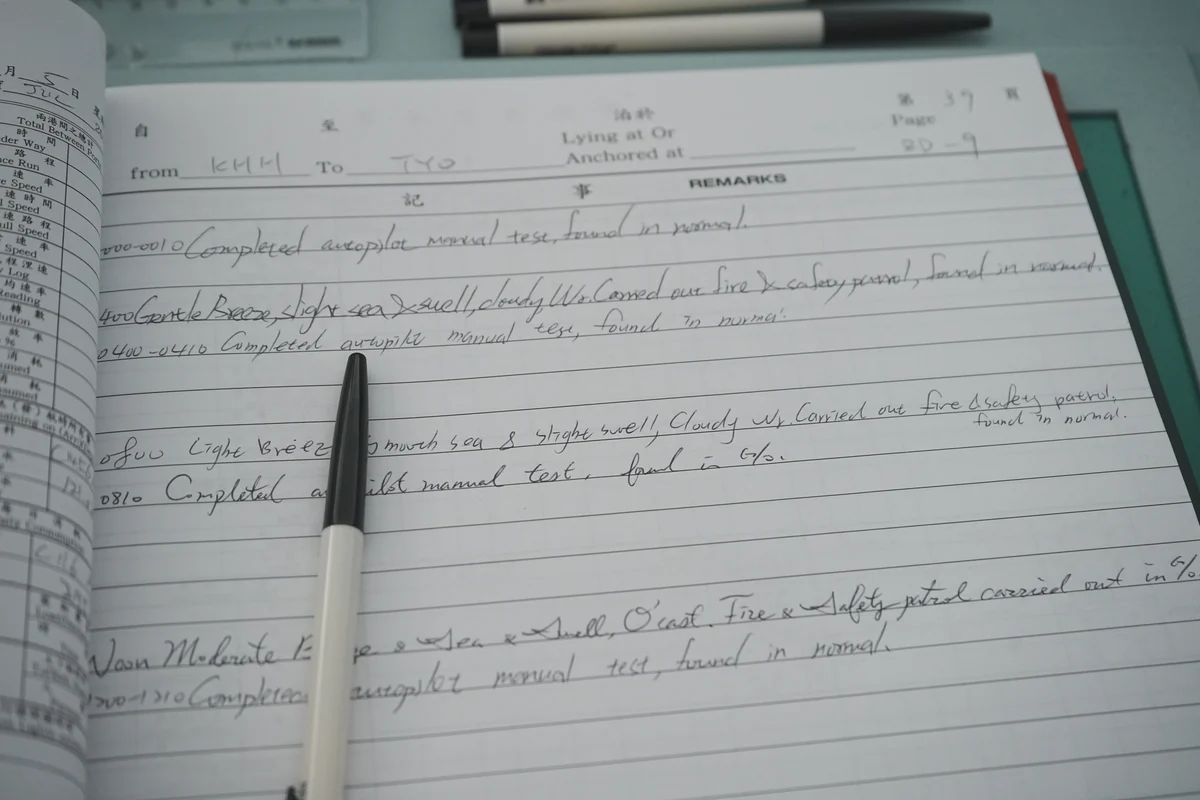 月 5 日
JUL
兩港間之總計
Total Between Ports
時 間
der Way
路 程
nce Run
速 率
e Speed
速 時 間
l Speed
速 路 程
ull Speed
速 率
Speed
程 浬 速
y Log
均 速 率
Reading
轉 數
lution
效 率
%
消 耗
umed
消 耗
nsumed
自 至 泊於 第 39 頁
Lying at Or Page
from KHH To TYO Anchored at
BD-9
記 事 REMARKS
000-0010 Completed autopilot manual test, found in normal.
400 Gentle Breeze, slight sea & swell, cloudy Wr. Carried out fire & safety patrol, found in normal.
0400-0410 Completed autopilot manual test, found in normal.
0800 Light Breez mooth sea & slight swell, Cloudy Wr. Carried out fire & safety patrol,
found in normal.
0810 Completed au ilot manual test, found in G/o.
Noon Moderate B e & Sea & Swell, O'cast. Fire & Safety patrol carried out in G/o
1200-1210 Completed autopilot manual test, found in normal.